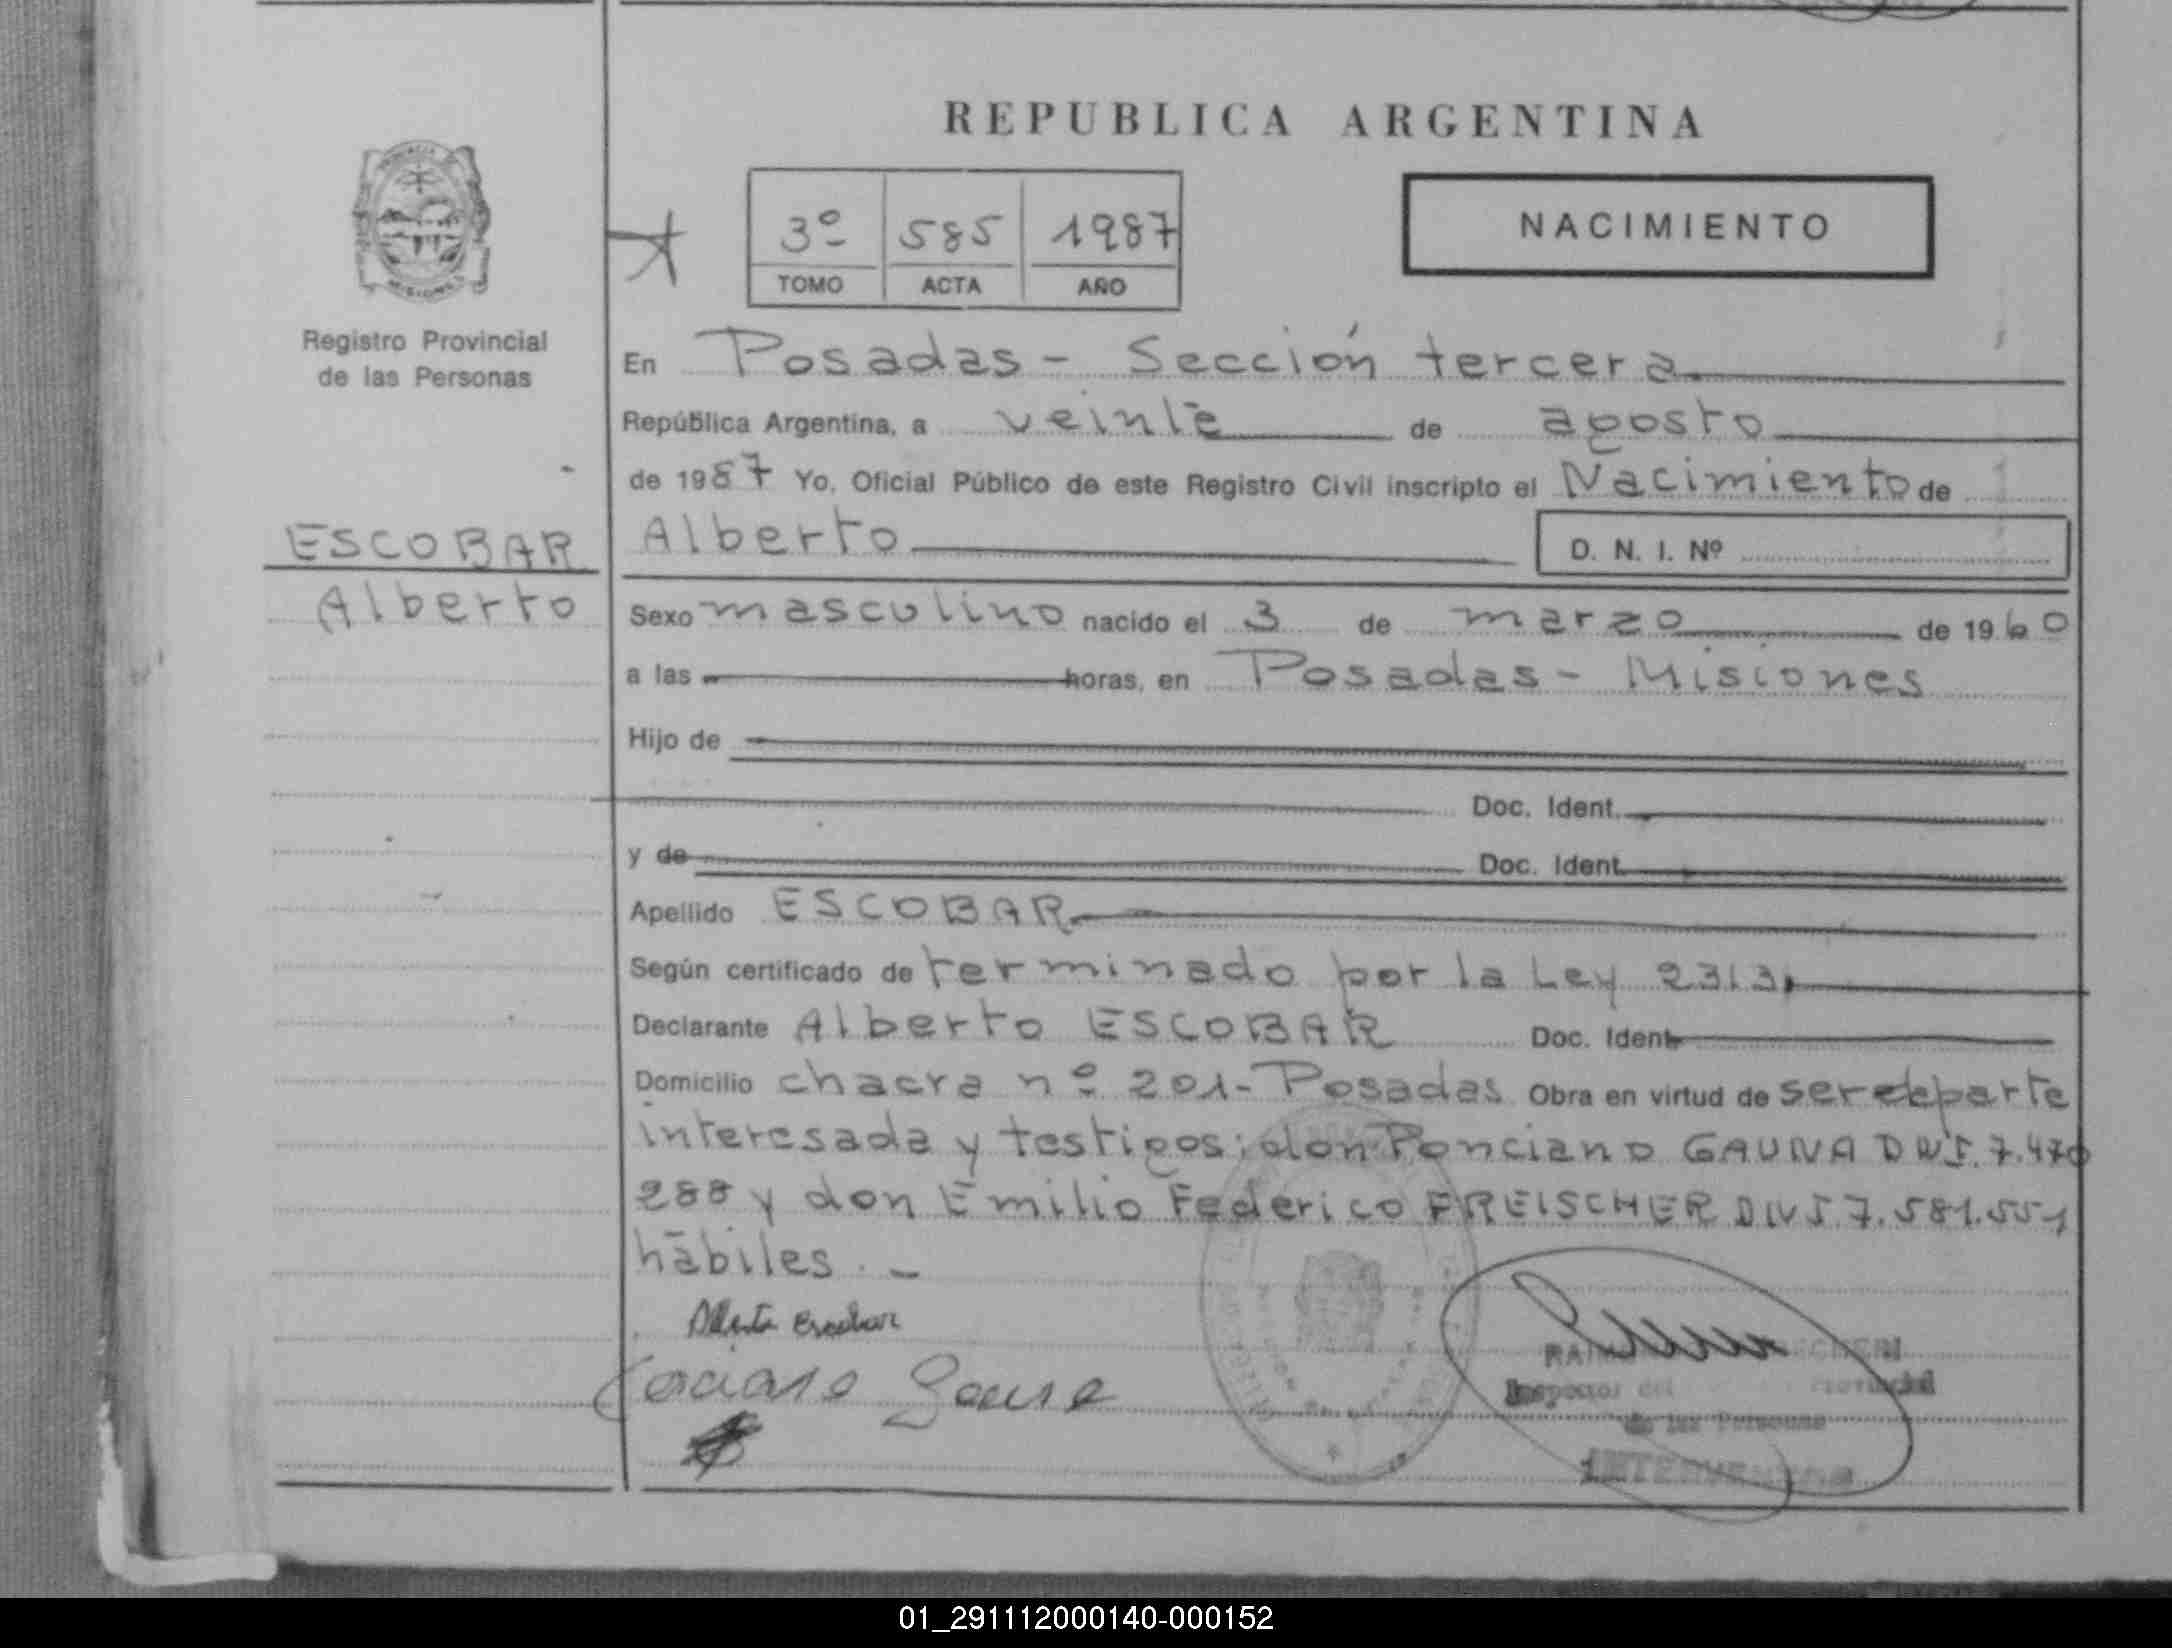 REPUBLICA ARGENTINA
3º 585 1987
TOMO ACTA AÑO
NACIMIENTO
Registro Provincial
de las Personas
ESCOBAR
Alberto
En Posadas - Sección tercera
República Argentina, a veinte de agosto
de 1987 Yo, Oficial Público de este Registro Civil inscripto el Nacimiento de
Alberto D. N. I. Nº
Sexo masculino nacido el 3 de marzo de 1960
a las horas, en Posadas - Misiones
Hijo de
Doc. Ident.
y de Doc. Ident.
Apellido ESCOBAR
Según certificado de terminado por la Ley 2313
Declarante Alberto ESCOBAR Doc. Ident
Domicilio chacra nº 201 - Posadas Obra en virtud de ser parte
interesada y testigos: don Ponciano GAUNA DNI. 7.470
288 y don Emilio Federico FREISCHER DNI 7.581.551
hábiles. -
Alberto Escobar
Ponciano Gauna
Inspector del Provincial
de las Personas
INTERVENTOR
01_291112000140-000152